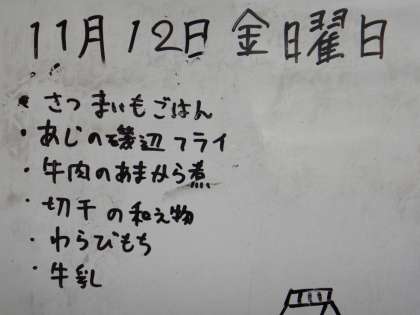 11月12日 金曜日
・さつまいもごはん
・あじの磯辺フライ
・牛肉のあまから煮
・切干の和え物
・わらびもち
・牛乳